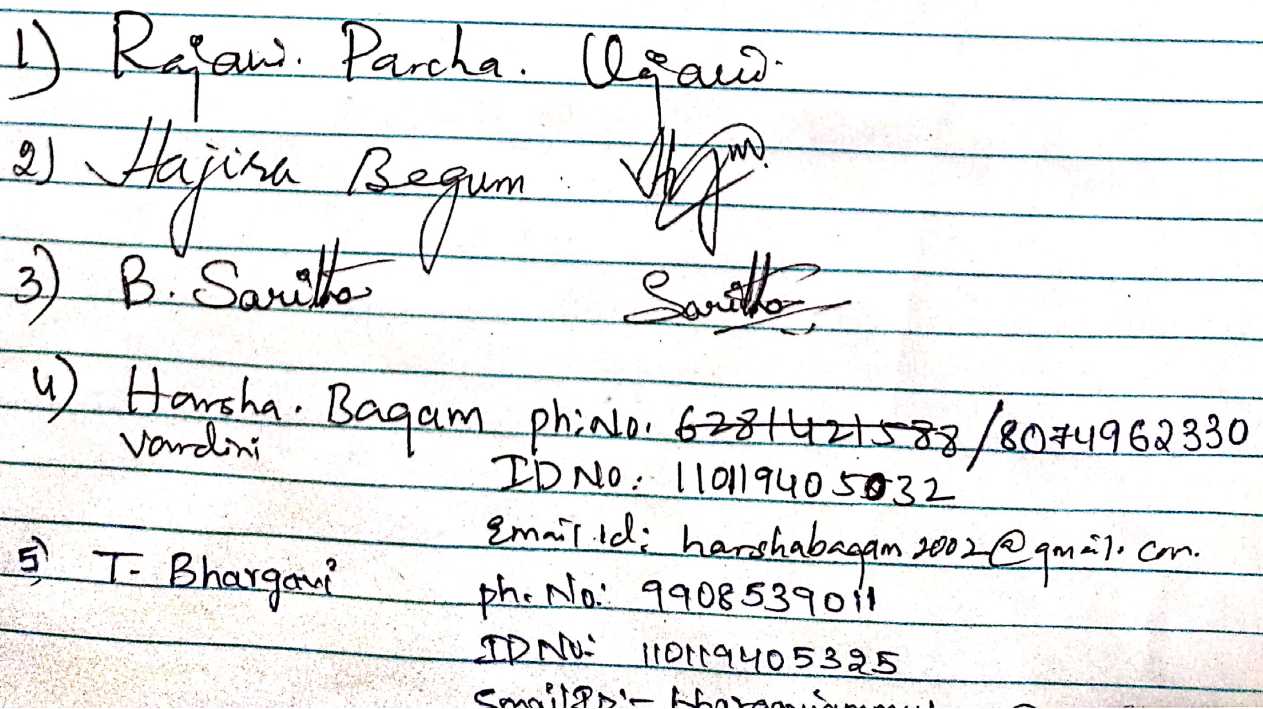 1) Rajani. Parcha.
2) Hajira Begum.
3) B. Saritha Saritha
4) Harsha. Bagam ph:No. 6281421588/8074962330
Vardini
ID No: 110119405032
Email.id: harshabagam2002@gmail.com.
5) T. Bhargavi
ph. No: 9908539011
ID No: 110119405325
Email ID:-